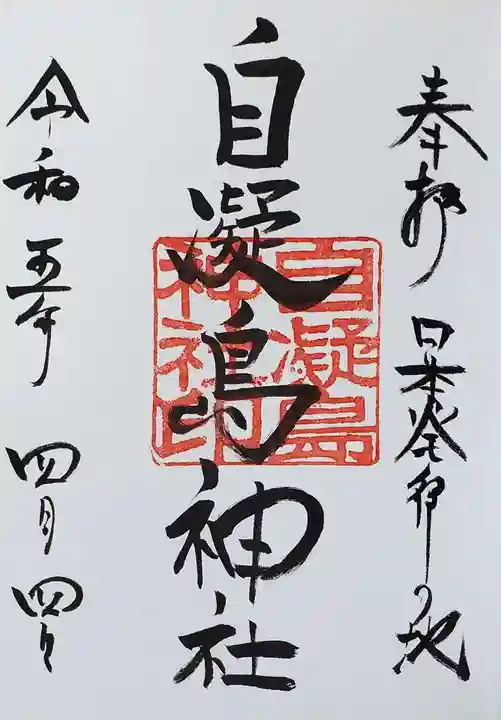 奉拝 日本発祥の地
自凝島神社
自凝島神社印
令和五年 四月 四日